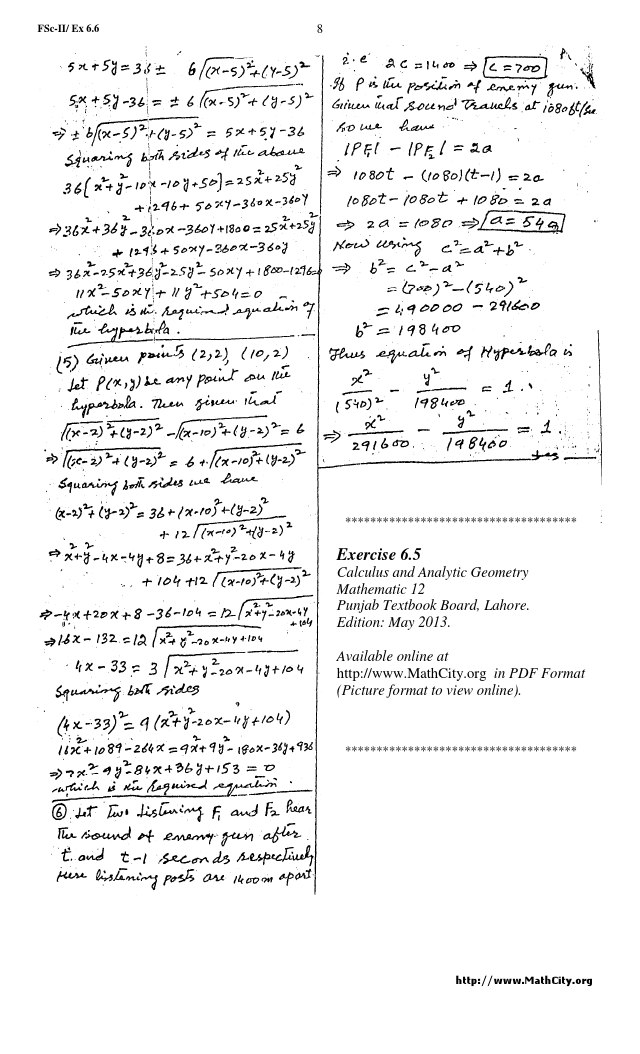 FSc-II/ Ex 6.6
8
5x+5y=36 ± 6√(x-5)²+(y-5)²
5x+5y-36 = ± 6√(x-5)²+(y-5)²
⇒ ± 6√(x-5)²+(y-5)² = 5x+5y-36
Squaring both sides of the above
36[x²+y²-10x-10y+50]=25x²+25y²
+1296+50xy-360x-360y
⇒36x²+36y²-360x-360y+1800=25x²+25y²
+1296+50xy-360x-360y
⇒ 36x²-25x²+36y²-25y²-50xy+1800-1296=0
11x²-50xy+11y²+504=0
which is the required equation of
the hyperbola.
(5) Given points (2,2), (10,2)
Let P(x,y) be any point on the
hyperbola. Then given that
√(x-2)²+(y-2)² - √(x-10)²+(y-2)² = 6
⇒ √(x-2)²+(y-2)² = 6+√(x-10)²+(y-2)²
Squaring both sides we have
(x-2)²+(y-2)² = 36+(x-10)²+(y-2)²
+12√(x-10)²+(y-2)²
⇒ x²+y²-4x-4y+8=36+x²+y²-20x-4y
+104+12√(x-10)²+(y-2)²
⇒-4x+20x+8-36-104=12√x²+y²-20x-4y+104
⇒16x-132=12√x²+y²-20x-4y+104
4x-33 = 3√x²+y²-20x-4y+104
Squaring both sides
(4x-33)²=9(x²+y²-20x-4y+104)
16x²+1089-264x=9x²+9y²-180x-36y+936
⇒7x²-9y²-84x+36y+153=0
which is the required equation.
⑥ Let two listening F₁ and F₂ hear
the sound of enemy gun after
t and t-1 seconds respectively
Here listening posts are 1400m apart
i.e 2c=1400 ⇒ c=700
If P is the position of enemy gun.
Given that sound travels at 1080ft/sec
so we have
|PF₁| - |PF₂| = 2a
⇒ 1080t - (1080)(t-1) = 2a
1080t-1080t+1080 = 2a
⇒ 2a=1080 ⇒ a=540
Now using c²=a²+b²
⇒ b²=c²-a²
=(700)²-(540)²
=490000-291600
b²=198400
Thus equation of Hyperbola is
x²/(540)² - y²/198400 = 1.
⇒ x²/291600 - y²/198400 = 1.
*************************************
Exercise 6.5
Calculus and Analytic Geometry
Mathematic 12
Punjab Textbook Board, Lahore.
Edition: May 2013.
Available online at
http://www.MathCity.org in PDF Format
(Picture format to view online).
*************************************
http://www.MathCity.org